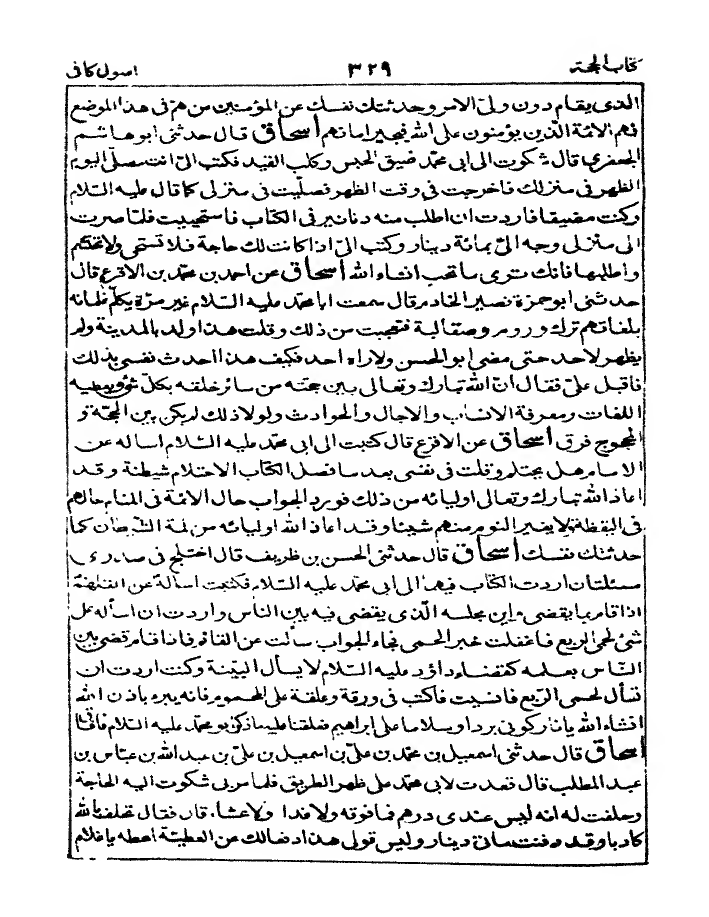 كتاب الحجة ٣٢٩ اصول كافى
الذى يقام دون ولى الامر وحدثتك نفسك عن المؤمنين من هم فى هذا الموضع
فهم الائمة الذين يؤمنون على الله فيجيز امانهم اسحاق قال حدثنى ابو هاشم
الجعفرى قال شكوت الى ابى محمد ضيق الحبس وكلب القيد فكتب الىّ انت مصلى اليوم
الظهر فى منزلك فاخرجت فى وقت الظهر فصليت فى منزلى كما قال عليه السلام
وكنت مضيقا فاردت ان اطلب منه دنانير فى الكتاب فاستحييت فلما صرت
الى منزلى وجه الىّ بمائة دينار وكتب الىّ اذا كانت لك حاجة فلا تستحى ولا تحتشم
واطلبها فانك ترى ما تحب انشاء الله اسحاق عن احمد بن محمد بن الاقرع قال
حدثنى ابو حمزة نصير الخادم قال سمعت ابا محمد عليه السلام غير مرّة يكلّم غلمانه
بلغاتهم ترك وروم وصقالبة فتعجبت من ذلك وقلت هذا ولد بالمدينة ولم
يظهر لاحد حتى مضى ابو الحسن ولا راه احد فكيف هذا احدث نفسى بذلك
فاقبل علىّ فقال انّ الله تبارك وتعالى بين حجته من سائر خلقه بكلّ شئ ويعطيه
اللغات ومعرفة الانساب والاجال والحوادث ولولا ذلك لم يكن بين الحجّة و
المحجوج فرق اسحاق عن الاقرع قال كتبت الى ابى محمد عليه السلام اساله عن
الامام هل يحتلم وقلت فى نفسى بعد ما فصل الكتاب الاحتلام شيطنة وقد
اعاذ الله تبارك وتعالى اوليائه من ذلك فورد الجواب حال الائمة فى المنام حالهم
فى اليقظة لا يغير النوم منهم شيئا وقد اعاذ الله اوليائه من لمة الشيطان كما
حدثتك نفسك اسحاق قال حدثنى الحسن بن ظريف قال اختلج فى صدرى
مسئلتان اردت الكتاب فيهما الى ابى محمد عليه السلام فكتبت اسالة عن القائم
اذا قام بما يقضى واين مجلسه الّذى يقضى فيه بين الناس واردت ان اسأله عن
شئ لحمى الربع فاغفلت خبر الحمى فجاء الجواب سألت عن القائم فاذا قام قضى بين
النّاس بعلمه كقضاء داؤد عليه السلام لا يسأل البيّنة وكنت اردت ان
تسأل لحمى الرّبع فانسيت فاكتب فى ورقة وعلقه على المحموم فانه يبرء باذن الله
انشاء الله يا نار كونى بردا وسلاما على ابراهيم فعلقنا عليه ما ذكر ابو محمد عليه السلام فافاق
اسحاق قال حدثنى اسمعيل بن محمد بن علىّ بن اسمعيل بن علىّ بن عبد الله بن عبّاس بن
عبد المطلب قال قعدت لابى محمد على ظهر الطريق فلما مر بى شكوت اليه الحاجة
وحلفت له انه ليس عندى درهم فما فوقه ولا غداء ولا عشاء قال فقال تحلف بالله
كاذبا وقد دفنت مائتى دينار وليس قولى هذا دفعا لك عن العطيّة اعطه يا غلام